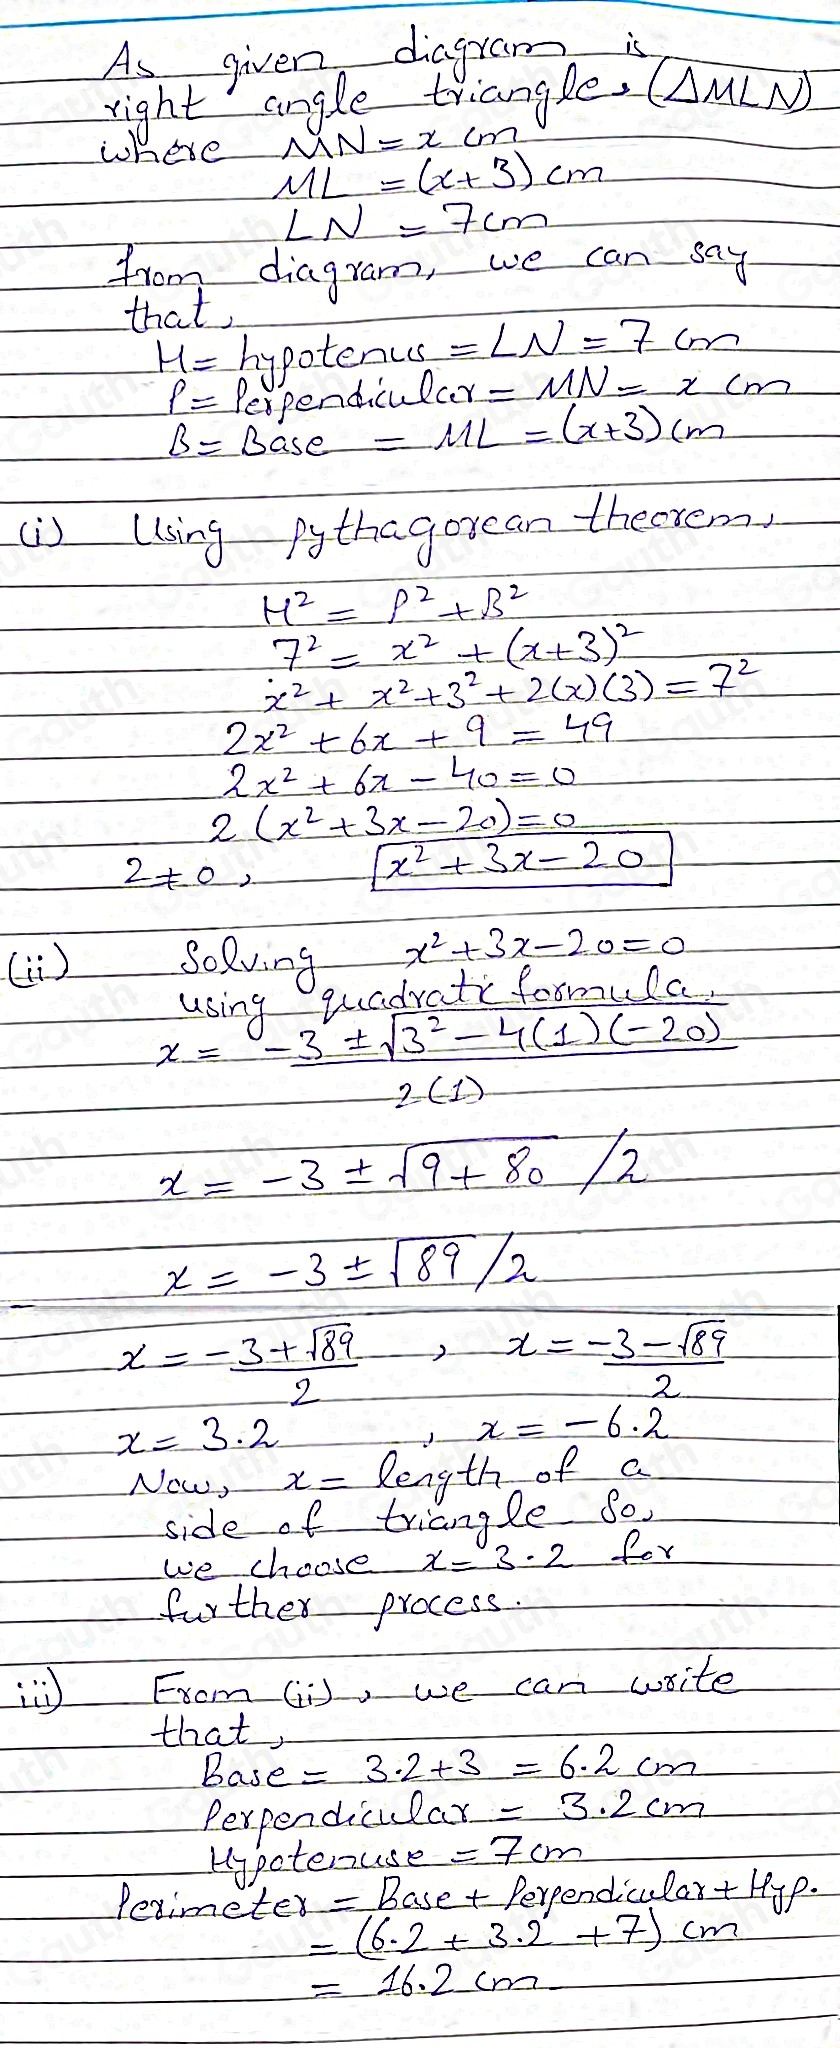 As given diagram is
right angle triangle, (△MLN)
where MN = x cm
ML = (x+3) cm
LN = 7cm
from diagram, we can say
that,
H = hypotenus = LN = 7 cm
P = Perpendicular = MN = x cm
B = Base = ML = (x+3) cm
(i) Using pythagorean theorem,
H² = P² + B²
7² = x² + (x+3)²
x² + x² + 3² + 2(x)(3) = 7²
2x² + 6x + 9 = 49
2x² + 6x - 40 = 0
2 (x² + 3x - 20) = 0
2 ≠ 0, x² + 3x - 20
(ii) Solving x² + 3x - 20 = 0
using quadratic formula,
x = -3 ± √3² - 4(1)(-20)
2(1)
x = -3 ± √9 + 80 /2
x = -3 ± √89 /2
x = -3 + √89 , x = -3 - √89
2 2
x = 3.2 , x = -6.2
Now, x = length of a
side of triangle So,
we choose x = 3.2 for
further process.
iii) From (ii), we can write
that,
Base = 3.2 + 3 = 6.2 cm
Perpendicular = 3.2 cm
Hypotenuse = 7 cm
Perimeter = Base + Perpendicular + Hyp.
= (6.2 + 3.2 + 7) cm
= 16.2 cm